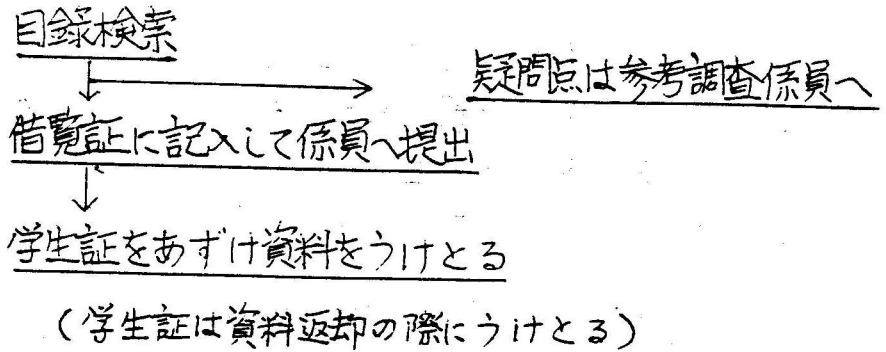 目録検索
疑問点は参考調査係員へ
借覧証に記入して係員へ提出
学生証をあずけ資料をうけとる
(学生証は資料返却の際にうけとる)